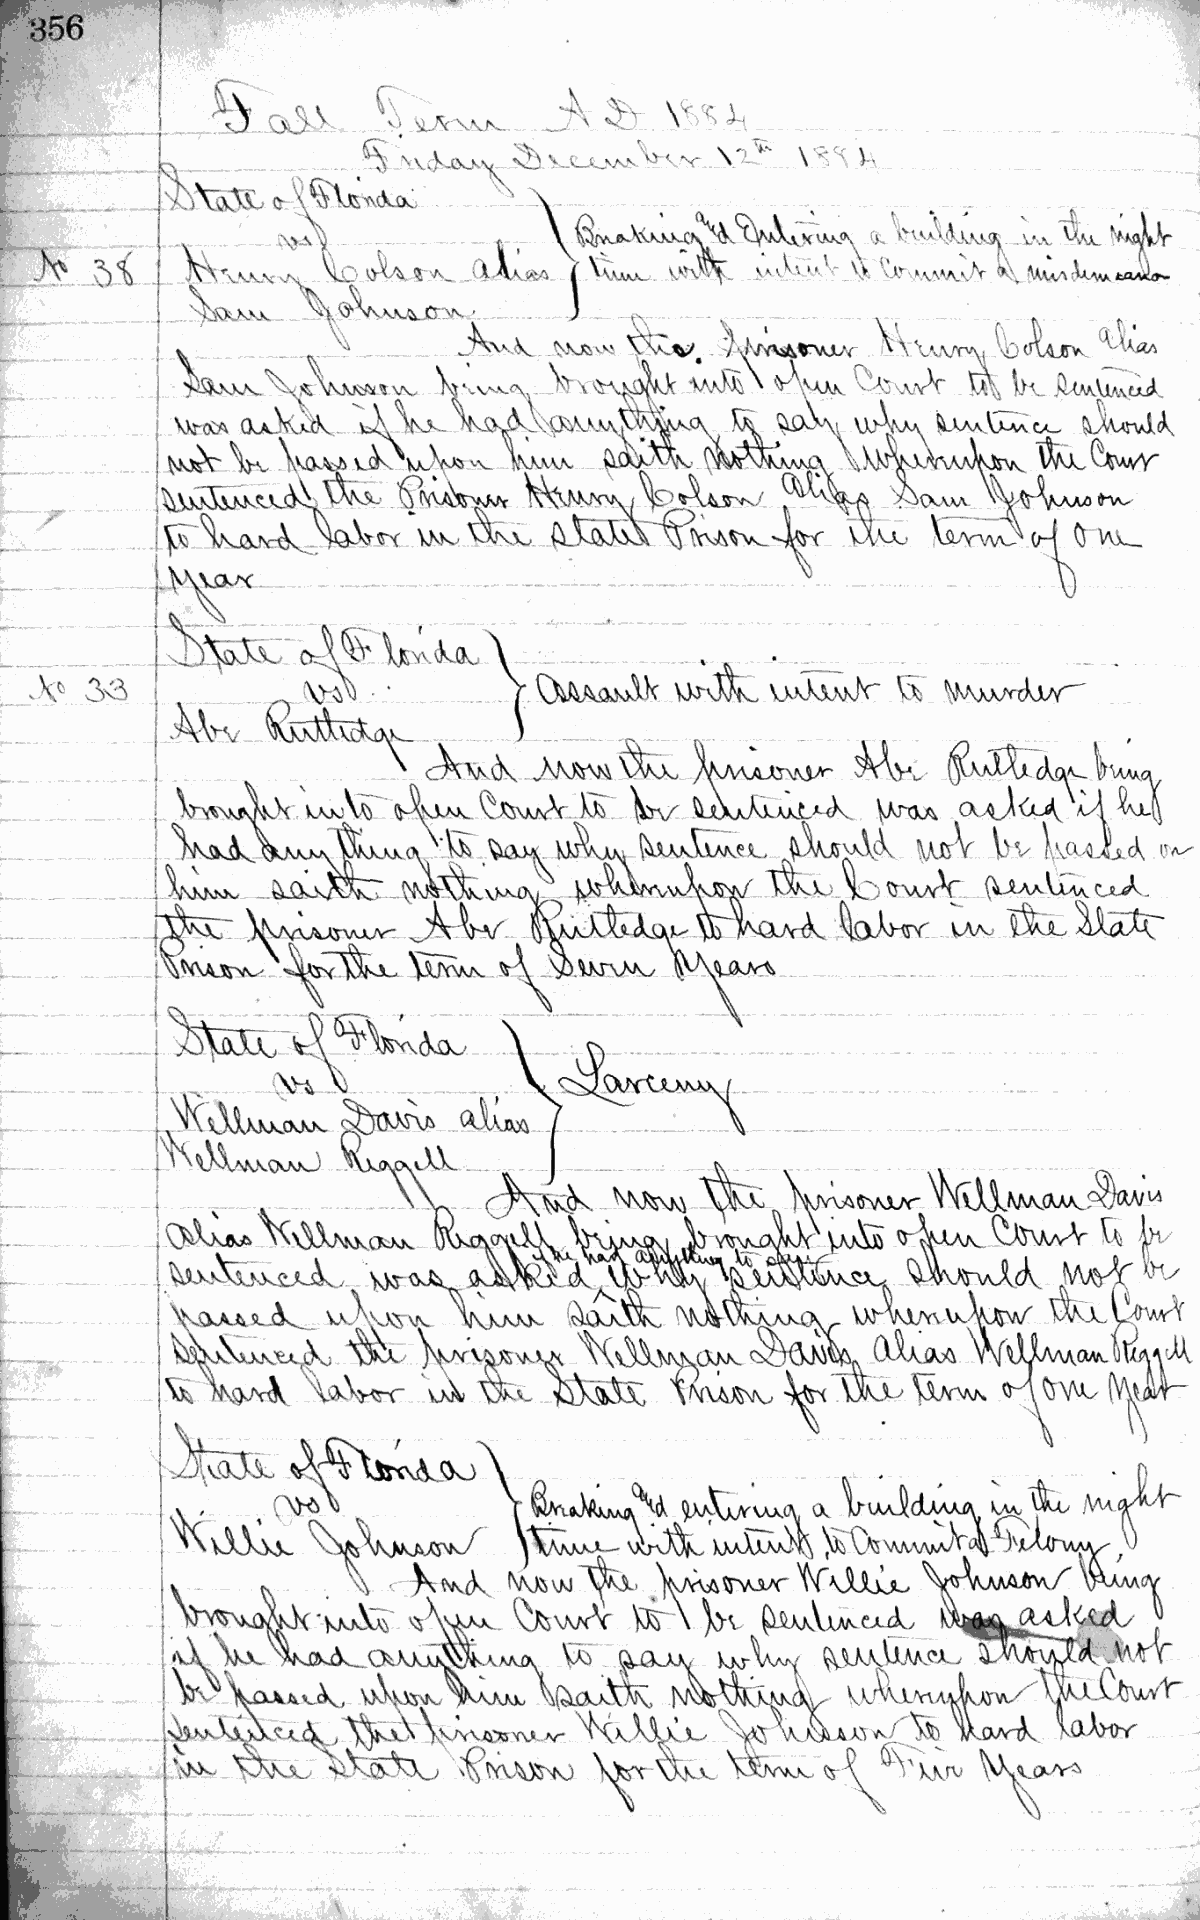 356
Fall Term A D 1884
Friday December 12th 1884
State of Florida
vs
Breaking and Entering a building in the night
No 38 Henry Colson alias time with intent to Commit a misdemeanor
Sam Johnson
And now the prisoner Henry Colson alias
Sam Johnson being brought into open Court to be sentenced
was asked if he had anything to say why sentence should
not be passed upon him saith nothing whereupon the Court
sentenced the Prisoner Henry Colson alias Sam Johnson
to hard labor in the State Prison for the term of one
year
State of Florida
No 33 vs Assault with intent to murder
Abe Rutledge
And now the prisoner Abe Rutledge being
brought into open Court to be sentenced was asked if he
had anything to say why sentence should not be passed on
him saith nothing whereupon the Court sentenced
the prisoner Abe Rutledge to hard labor in the State
Prison for the term of Seven Years
State of Florida
vs Larceny
Wellman Davis alias
Wellman Riggell
And now the prisoner Wellman Davis
alias Wellman Riggell being brought into open Court to be
if he had anything to say
sentenced was asked why sentence should not be
passed upon him saith nothing whereupon the Court
sentenced the prisoner Wellman Davis alias Wellman Riggell
to hard labor in the State Prison for the term of one year
State of Florida
vs Breaking and entering a building in the night
Willie Johnson time with intent to Commit a Felony
And now the prisoner Willie Johnson being
brought into open Court to be sentenced was asked
if he had anything to say why sentence should not
be passed upon him saith nothing whereupon the Court
sentenced the prisoner Willie Johnson to hard labor
in the State Prison for the term of Five Years